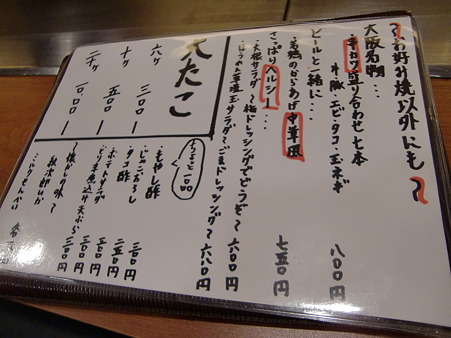 〜お好み焼以外にも〜
大阪名物…
串カツ盛り合わせ七本 八〇〇円
牛、豚、エビ、タコ、玉ネギ
ビールと一緒に…
若鶏のからあげ中華風 七五〇円
さっぱりヘルシー…
大根サラダ〜梅ドレッシングでどうぞ〜 六〇〇円
ほうれん草温玉サラダ〜ごまドレッシング〜 六八〇円
大たこ
六ヶ 三〇〇ー
十ヶ 五〇〇ー
二十ヶ 一〇〇〇ー
ちょっと一品
もやし酢
じゃこおろし 三〇〇円
タコ酢 三五〇円
ポテトサラダ 三〇〇円
〜懐かしの味〜
ミルクせんべい